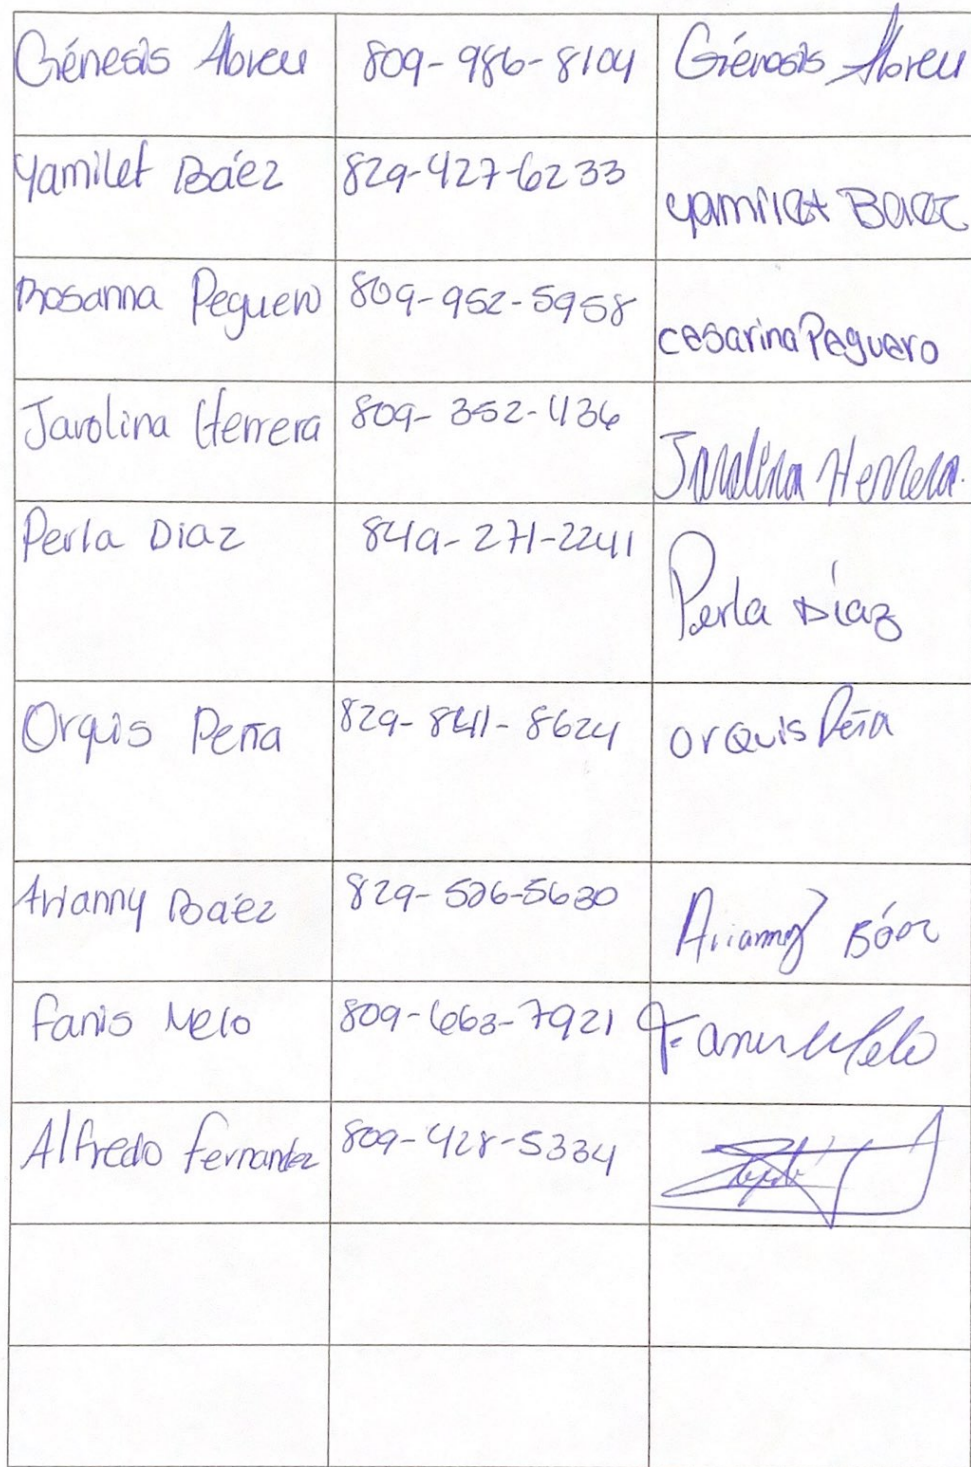 Génesis Abreu 809-986-8104 Génesis Abreu
Yamilet Báez 829-427-6233 yamilet Baez
Rosanna Peguero 809-952-5958 cesarina Peguero
Jarolina Herrera 809-352-436 Jarolina Herrera.
Perla Diaz 849-271-2241 Perla Díaz
Orquis Peña 829-841-8624 orquis Peña
Arianny Báez 829-526-5630 Arianny Báez
Fanis Melo 809-663-7921 Fanis Melo
Alfredo Fernandez 809-428-5334